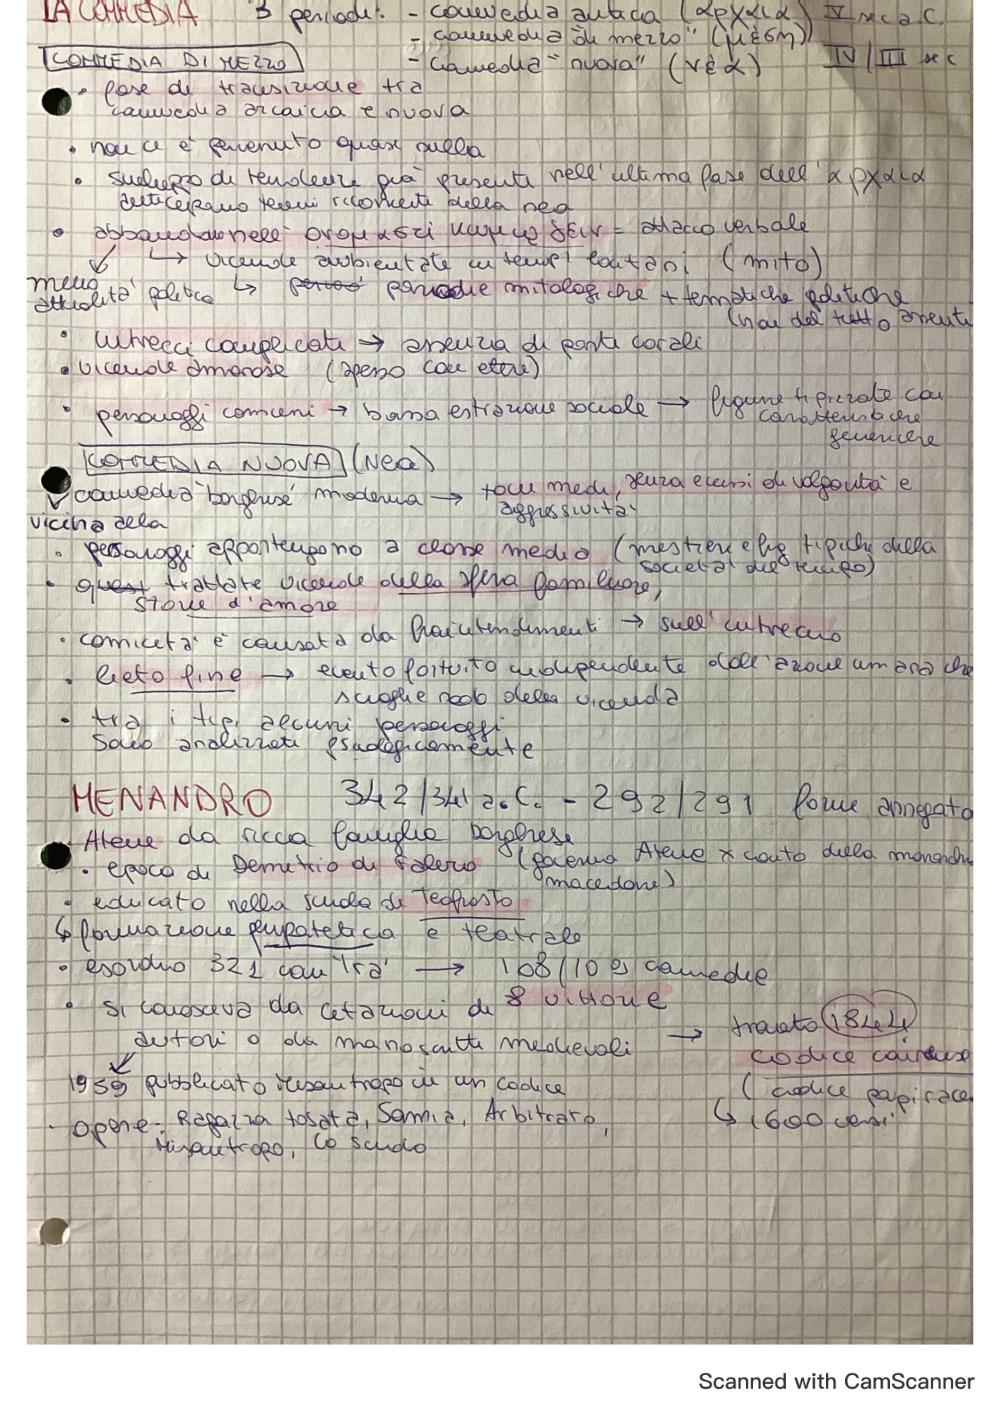 LA COMMEDIA 3 periodi: - commedia antica (αρχαια) V sec a.C.
- commedia "di mezzo" (μέση)
- commedia "nuova" (νέα) IV/III sec
COMMEDIA DI MEZZO
• fase di transizione tra
commedia arcaica e nuova
• non ci è pervenuto quasi nulla
• sviluppo di tendenze già presenti nell'ultima fase dell'αρχαια
anticipano temi ricorrenti della nea
• abbandono nell' ονομαστί κωμῳδεῖν = attacco verbale
↳ vicende ambientate in tempi lontani (mito)
meno
attualità politica ↳ parodie mitologiche + tematiche politiche
(non del tutto assenti
• intrecci complicati → assenza di parti corali
• vicende amorose (spesso con etere)
• personaggi comuni → bassa estrazione sociale → figure tipizzate con
caratteristiche
generiche
COMMEDIA NUOVA (Nea)
commedia "borghese" moderna → toni medi, senza eccessi di volgarità e
aggressività
vicina alla
• personaggi appartengono a classe media (mestieri e fig tipiche della
società del tempo)
• trattate vicende della sfera familiare,
storie d'amore
• comicità è causata da fraintendimenti → sull'intreccio
• lieto fine → evento fortuito indipendente dall'azione umana che
scioglie nodo della vicenda
• tra i tipi alcuni personaggi
sono analizzati psicologicamente
MENANDRO 342/341 a.C. - 292/291 forse annegato
Atene da ricca famiglia borghese
• epoca di Demetrio di Falero (governa Atene x conto della monarchia
macedone)
• educato nella scuola di Teofrasto
↳ formazione peripatetica e teatrale
• esordio 321 con "Ira" → 108/109 commedie
• 8 vittorie
• si conosceva da citazioni di
autori o da manoscritti medievoli → trovato 1844
codice cairense
(codice papiraceo
↳ 1600 versi
1959 pubblicato Misantropo in un codice
• opere: Ragazza tosata, Samia, Arbitrato,
Misantropo, Lo scudo
Scanned with CamScanner